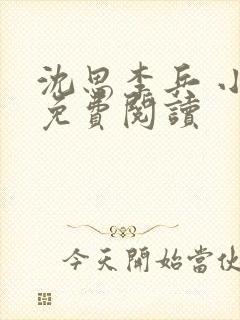 沈思李兵 小
免費閱讀
今天開始當伙